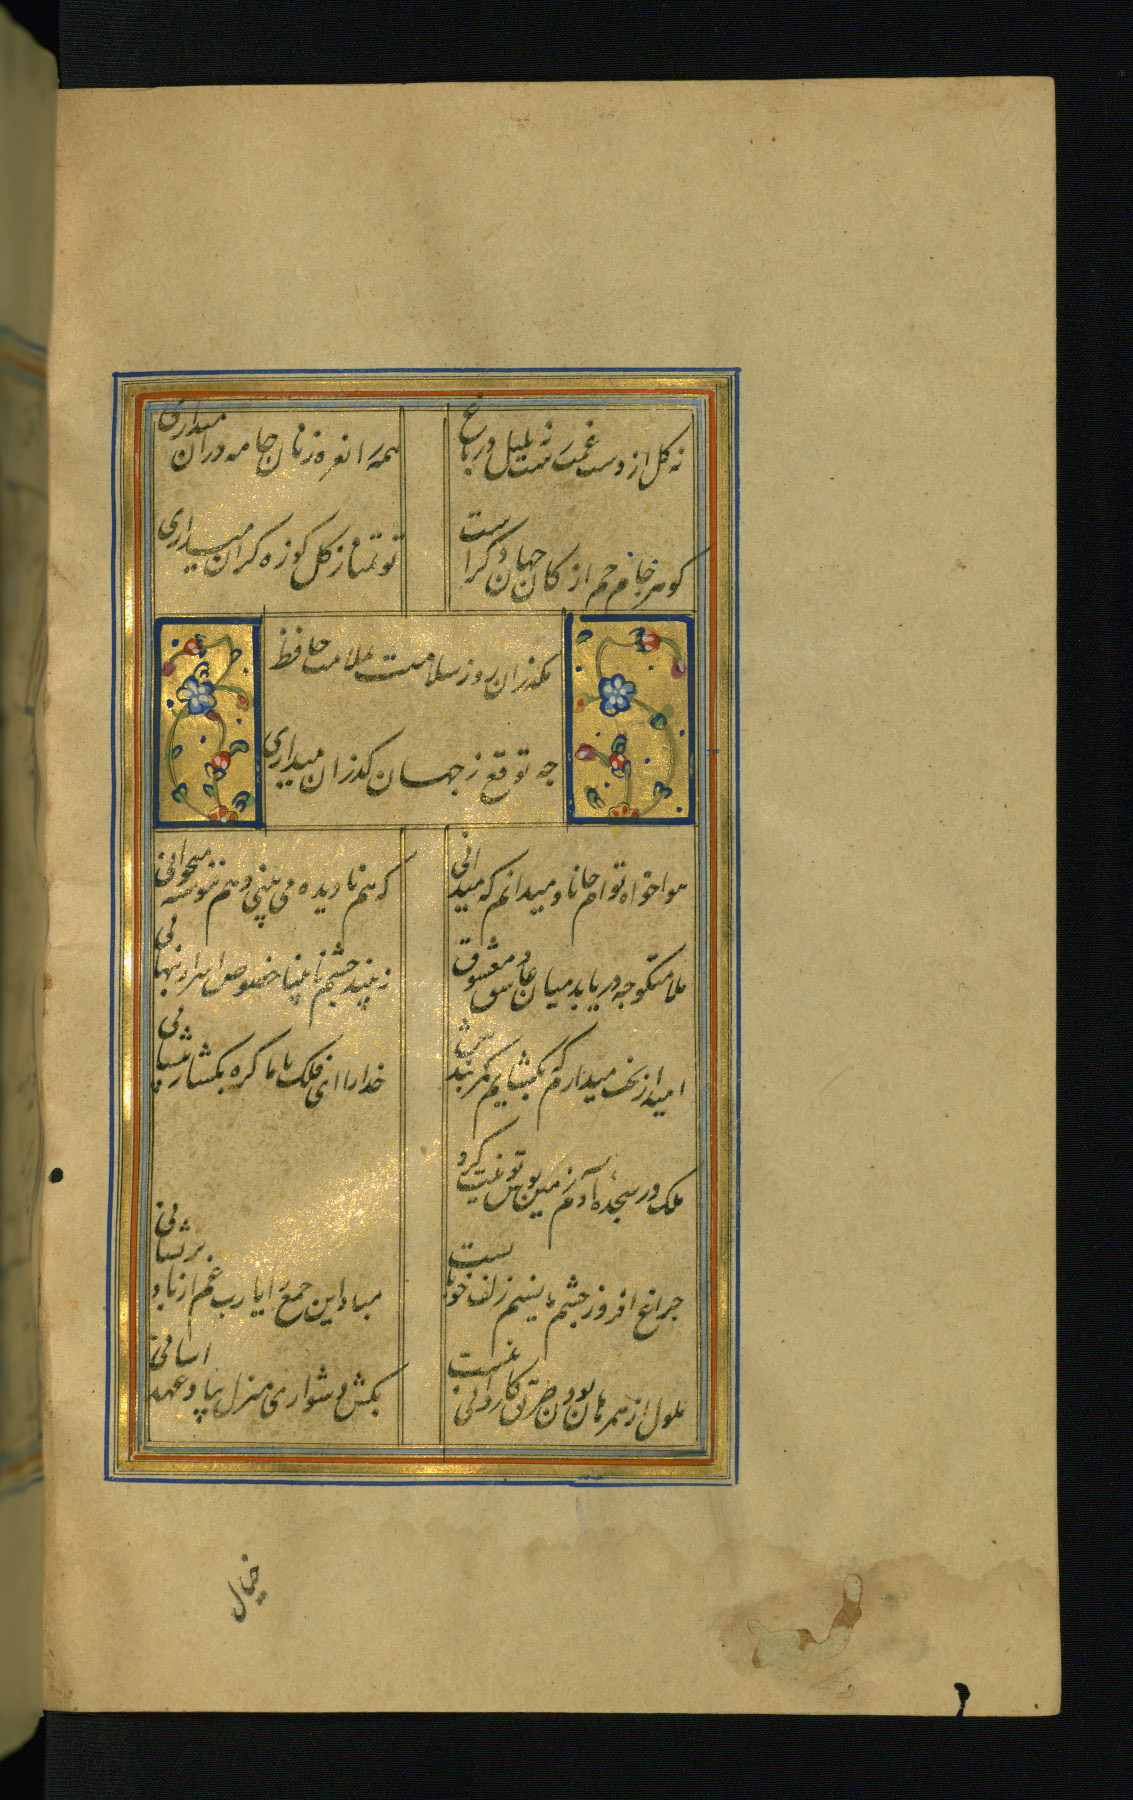 نه کل از دست غمت رست نه بلبل در باغ
همه را نعره زنان جامه دران میداری
کوهر جام جم از کان جهان دکر است
تو تمنا ز کل کوزه کران میداری
مکذران روز سلامت بملامت حافظ
جه توقع ز جهان کذران میداری
هواخواه توام جانا و میدانم که میدانی
که هم نادیده می بینی و هم ننوشته میخوانی
ملامتکو جه دریابد میان عاشق و معشوق
نبیند جشم نابینا خصوص اسرار پنهانی
امید از بخت میدارم که بکشایم کمربندش
خدارا ای فلک با ما کره بکشا ز پیشانی
ملک در سجده آدم زمین بوس تو نیت کرد
جراغ افروز جشم ما نسیم زلف خوبانست
مباد این جمع را یارب غم از باد پریشانی
ملول از همرهان بودن طریق کاردانی نیست
بکش دشواری منزل بیاد عهد آسانی
خیال